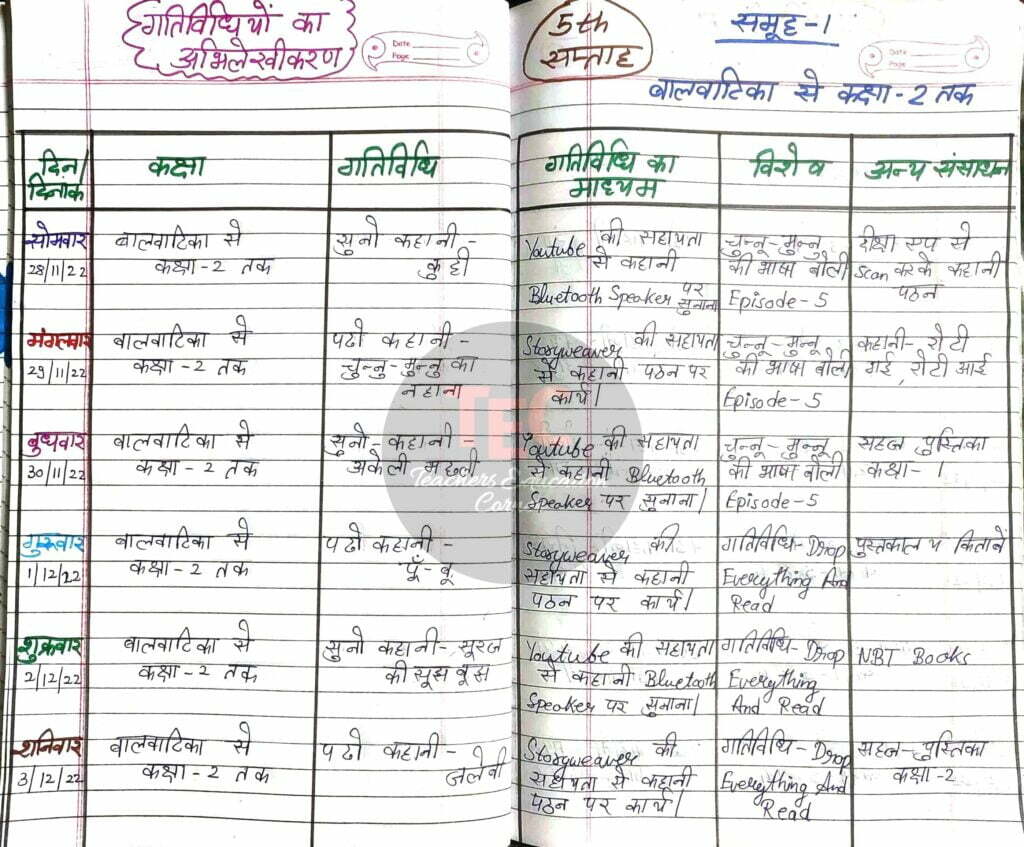 गतिविधियों का
अभिलेखीकरण
Date
Page
5th
सप्ताह
समूह-1
Date
Page
बालवाटिका से कक्षा-2 तक
दिन/
दिनांक
कक्षा
गतिविधि
गतिविधि का
माध्यम
विशेष
अन्य संसाधन
सोमवार
28/11/22
बालवाटिका से
कक्षा-2 तक
सुनो कहानी-
Youtube की सहायता
से कहानी
Bluetooth Speaker पर
सुनाना
चुन्नू-मुन्नू
की भाषा बोली
Episode-5
दीक्षा एप से
Scan करके कहानी
पठन
मंगलवार
29/11/22
बालवाटिका से
कक्षा-2 तक
पढो कहानी-
चुन्नु-मुन्नु का
नहाना
Storyweaver की सहायता
से कहानी पठन पर
कार्य।
चुन्नू-मुन्नू
की भाषा बोली
Episode-5
कहानी- रोटी
गई, रोटी आई
बुधवार
30/11/22
बालवाटिका से
कक्षा-2 तक
सुनो-कहानी-
अकेली मछली
Youtube की सहायता
से कहानी Bluetooth
Speaker पर सुनाना।
चुन्नू-मुन्नू
की भाषा बोली
Episode-5
सहज पुस्तिका
कक्षा-1
गुरुवार
1/12/22
बालवाटिका से
कक्षा-2 तक
पढो कहानी-
Storyweaver की
सहायता से कहानी
पठन पर कार्य।
गतिविधि-Drop
Everything And
Read
पुस्तकालय किताबें
शुक्रवार
2/12/22
बालवाटिका से
कक्षा-2 तक
सुनो कहानी-सूरज
की सूझ बूझ
Youtube की सहायता
से कहानी Bluetooth
Speaker पर सुनाना।
गतिविधि-Drop
Everything
And Read
NBT Books
शनिवार
3/12/22
बालवाटिका से
कक्षा-2 तक
पढो कहानी-
जलेबी
Storyweaver की
सहायता से कहानी
पठन पर कार्य।
गतिविधि-Drop
Everything And
Read
सहज-पुस्तिका
कक्षा-2
TEC
Teachers Education